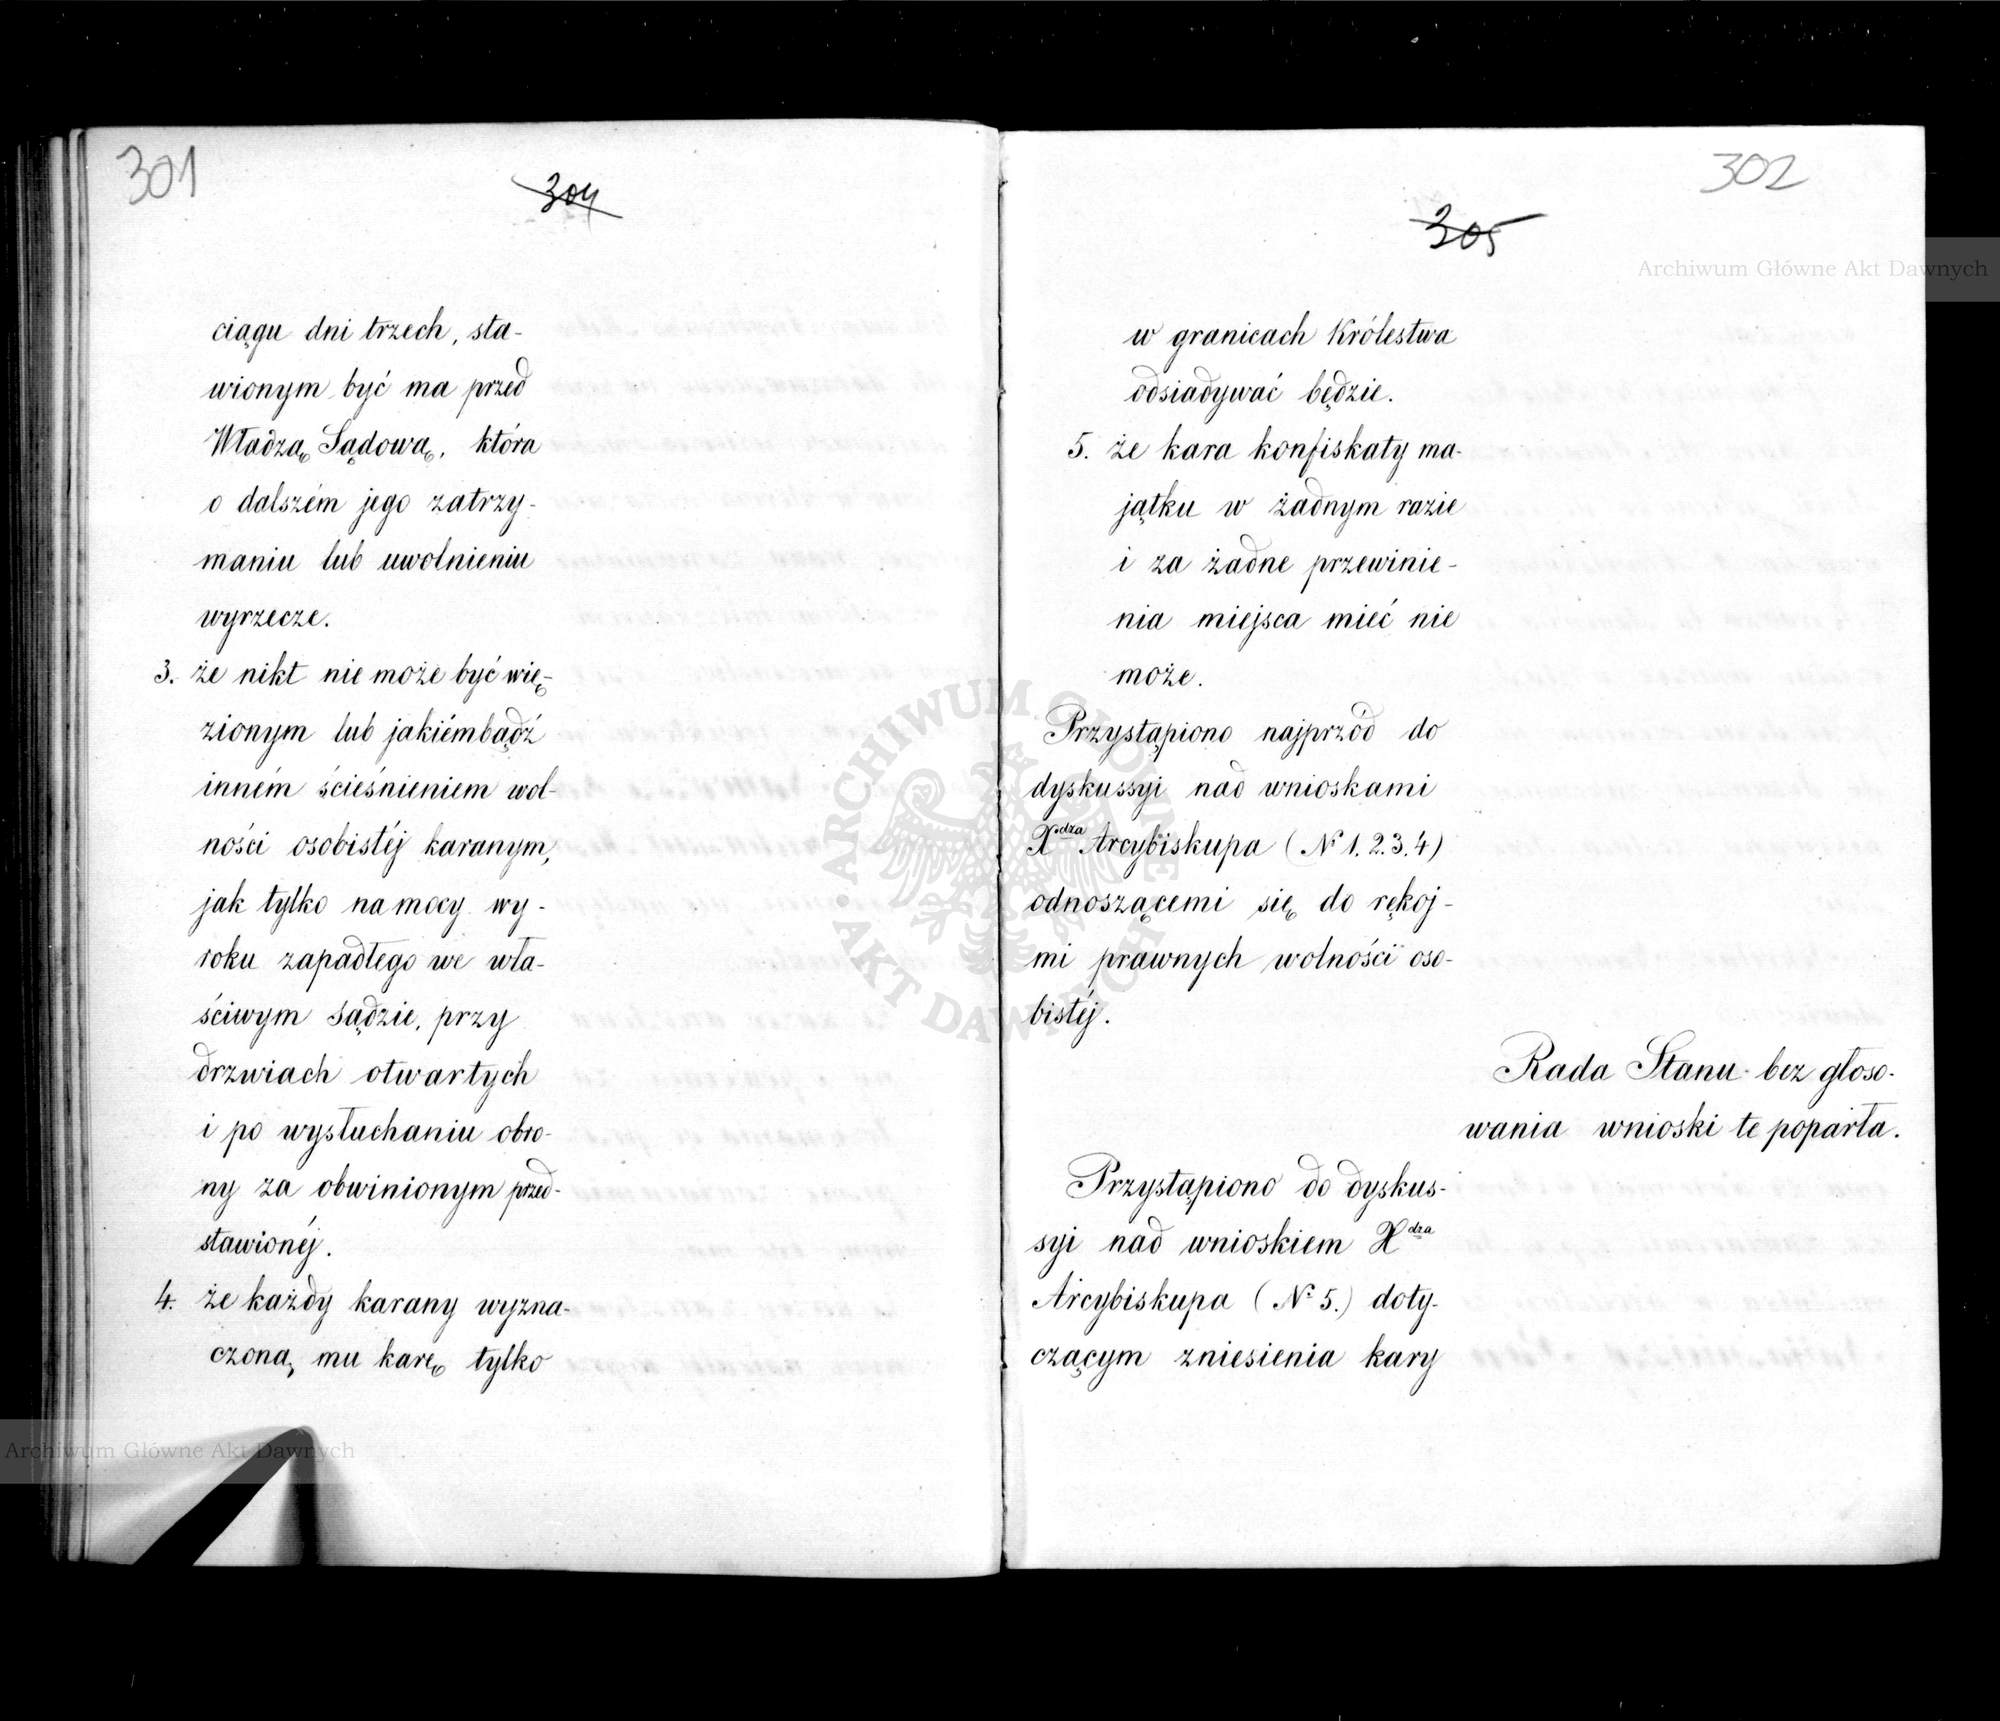 301
304
ciągu dni trzech, sta-
wionym być ma przed
Władzą Sądową, która
o dalszém jego zatrzy-
maniu lub uwolnieniu
wyrzecze.
3. że nikt nie może być wię-
zionym lub jakiémbądź
inném ścieśnieniem wol-
ności osobistéj karanym,
jak tylko na mocy wy-
roku zapadłego we wła-
ściwym Sądzie, przy
drzwiach otwartych
i po wysłuchaniu obro-
ny za obwinionym przed-
stawionéj.
4. że każdy karany wyzna-
czoną mu karę tylko
Archiwum Główne Akt Dawnych
302
305
Archiwum Główne Akt Dawnych
w granicach Królestwa
odsiadywać będzie.
5. że kara konfiskaty ma-
jątku w żadnym razie
i za żadne przewinie-
nia miejsca mieć nie
może.
Przystąpiono najprzód do
dyskussyi nad wnioskami
Xdza Arcybiskupa (№ 1. 2. 3. 4)
odnoszącemi się do rękoj-
mi prawnych wolności oso-
bistéj.
Rada Stanu bez głoso-
wania wnioski te poparła.
Przystąpiono do dyskus-
syi nad wnioskiem Xdza
Arcybiskupa (№ 5.) doty-
czącym zniesienia kary
ARCHIWUM GŁÓWNE AKT DAWNYCH